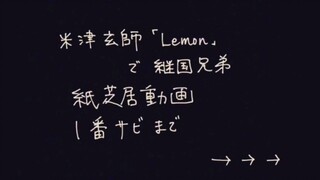 米津玄師「Lemon」
で 継国兄弟
紙芝居動画
1番サビまで
→ → →